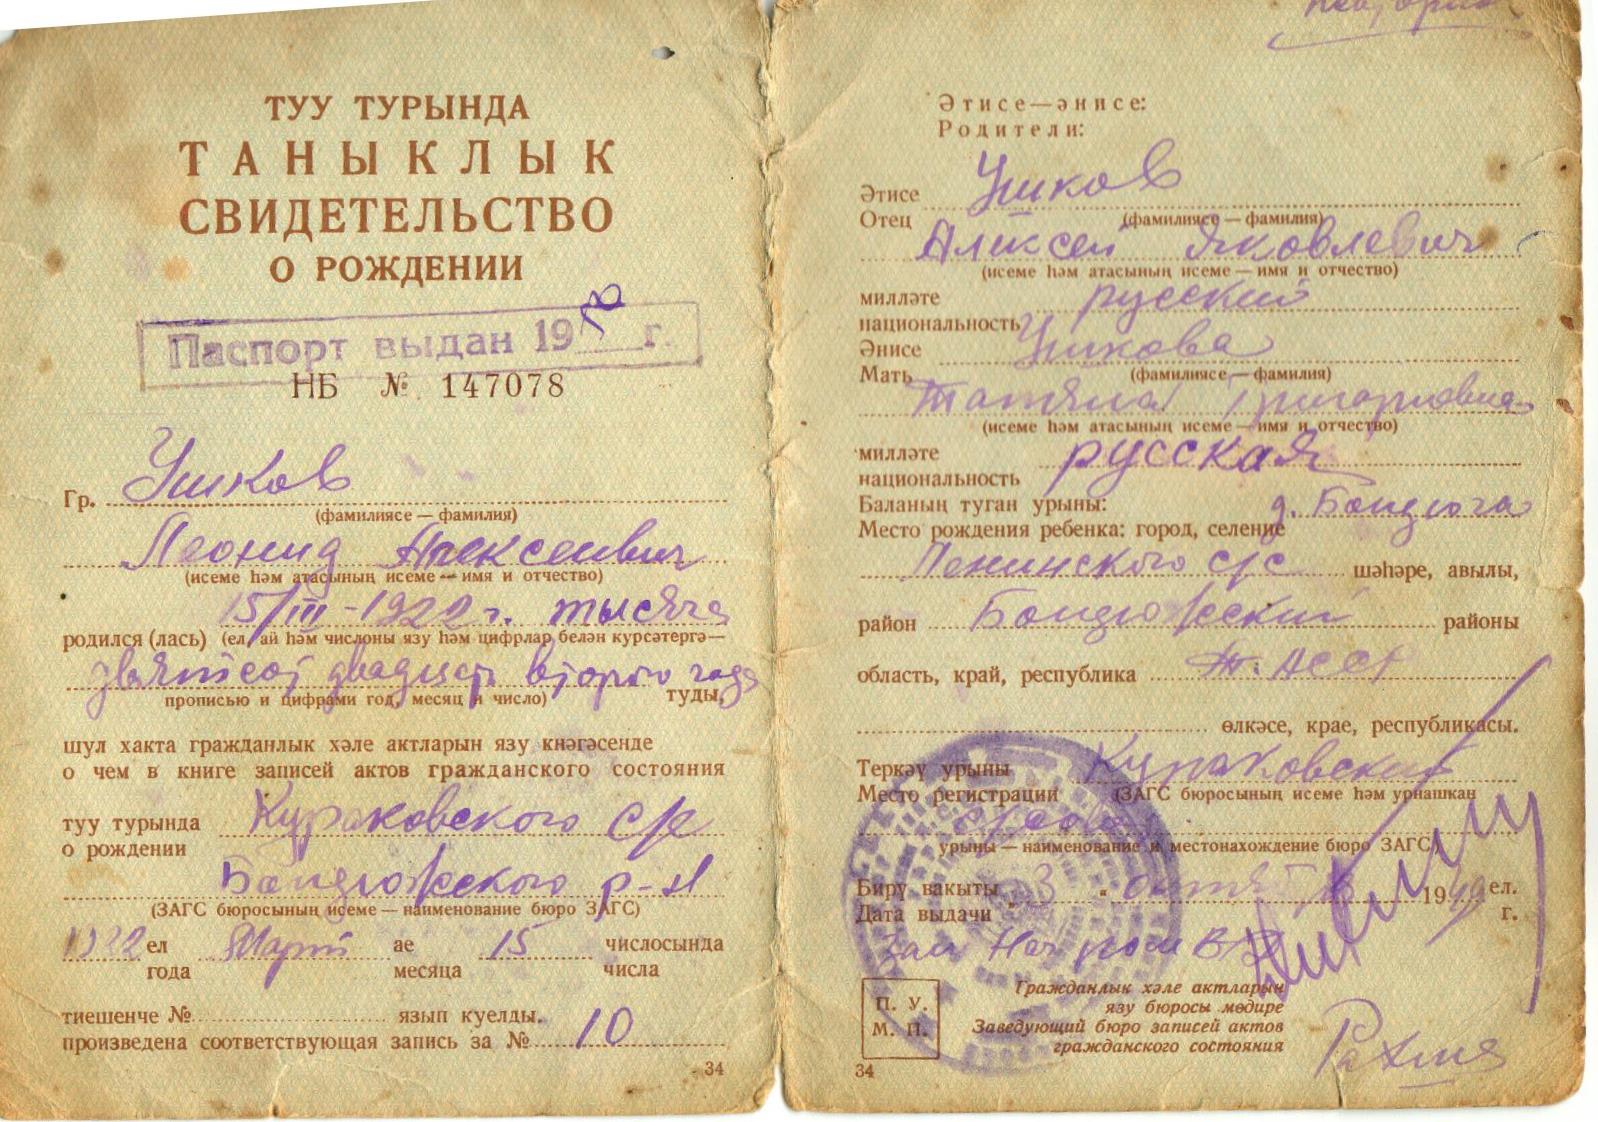 ТУУ ТУРЫНДА
ТАНЫКЛЫК
СВИДЕТЕЛЬСТВО
О РОЖДЕНИИ
Паспорт выдан 19 г.
НБ № 147078
Гр. Ушков
(фамилиясе — фамилия)
Леонид Алексеевич
(исеме һәм атасының исеме — имя и отчество)
15/III - 1922 г. тысяча
родился (лась) (ел, ай һәм числоны язу һәм цифрлар белән курсәтергә —
двадцать второго года
прописью и цифрами год, месяц и число) туды,
шул хакта гражданлык хәле актларын язу кнәгәсенде
о чем в книге записей актов гражданского состояния
туу турында Кураковского с/с
о рождении
Бондюжского р-н
(ЗАГС бюросының исеме — наименование бюро ЗАГС)
1922 ел Март ае 15 числосында
года месяца числа
тиешенче № язып куелды.
произведена соответствующая запись за № 10
34
Әтисе—әнисе:
Родители:
Әтисе Ушков
Отец (фамилиясе — фамилия)
Алексей Яковлевич
(исеме һәм атасының исеме — имя и отчество)
милләте русский
национальность
Әнисе Ушкова
Мать (фамилиясе — фамилия)
Татьяна Григорьевна
(исеме һәм атасының исеме — имя и отчество)
милләте русская
национальность
Баланың туган урыны: д. Бондюга
Место рождения ребенка: город, селение
Ленинского с/с шәһәре, авылы,
район Бондюжский районы
область, край, республика Т. АССР
өлкәсе, крае, республикасы.
Теркәү урыны Кураковский
Место регистрации (ЗАГС бюросының исеме һәм урнашкан
урыны — наименование и местонахождение бюро ЗАГС)
Бирү вакыты „3 " октября 1949 ел.
Дата выдачи г.
Зам Нач
П. У.
М. П.
Гражданлык хәле актларын
язу бюросы мөдире
Заведующий бюро записей актов
гражданского состояния
34